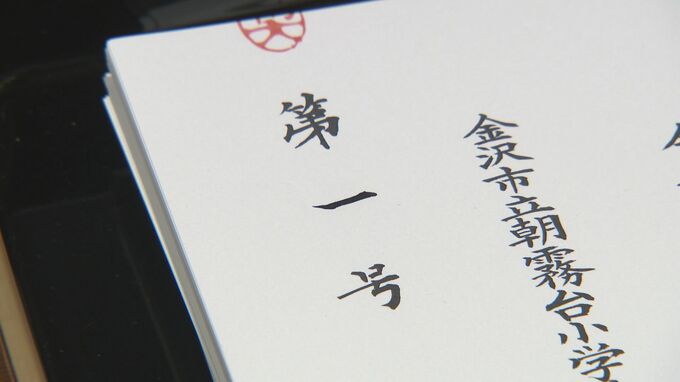 金沢市立朝霧台小学
第一号